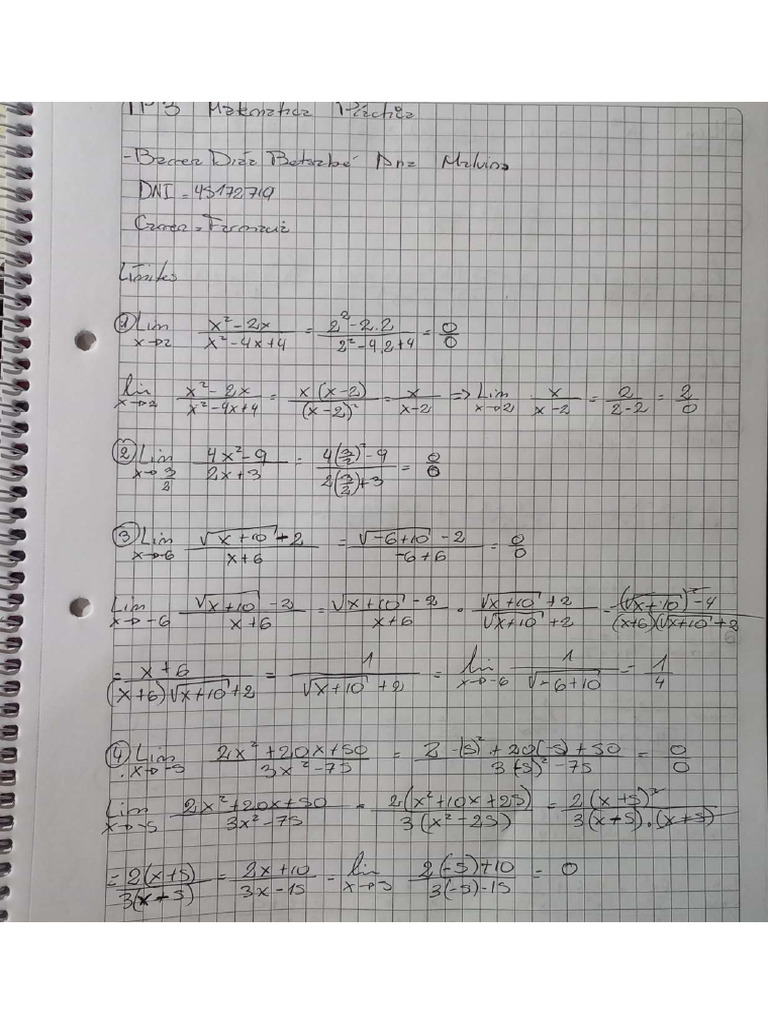 TP3 Matematica Práctica
- Barrera Diaz Betsabé Ana Malvina
DNI = 45172719
Carrera = Farmacia
Límites
① Lim x→2 (x² - 2x)/(x² - 4x + 4) = (2² - 2.2)/(2² - 4.2 + 4) = 0/0
lim x→2 (x² - 2x)/(x² - 4x + 4) = x(x-2)/(x-2)² = x/(x-2) => Lim x→2 x/(x-2) = 2/(2-2) = 2/0
② Lim x→3/2 (4x² - 9)/(2x + 3) = (4(3/2)² - 9)/(2(3/2) + 3) = 0/0
③ Lim x→-6 (√(x+10) + 2)/(x+6) = (√(-6+10) - 2)/(-6+6) = 0/0
Lim x→-6 (√(x+10) - 2)/(x+6) = (√(x+10) - 2)/(x+6) · (√(x+10) + 2)/(√(x+10) + 2) = ((√(x+10))² - 4)/((x+6)(√(x+10) + 2
= (x+6)/((x+6)√(x+10) + 2) = 1/(√(x+10) + 2) = lim x→-6 1/√(-6+10) = 1/4
④ Lim x→-5 (2x² + 20x + 50)/(3x² - 75) = (2·(-5)² + 20(-5) + 50)/(3(-5)² - 75) = 0/0
Lim x→-5 (2x² + 20x + 50)/(3x² - 75) = 2(x² + 10x + 25)/3(x² - 25) = 2(x+5)²/3(x+5).(x-5)
= 2(x+5)/3(x-5) = (2x+10)/(3x-15) = lim x→-5 (2(-5)+10)/(3(-5)-15) = 0